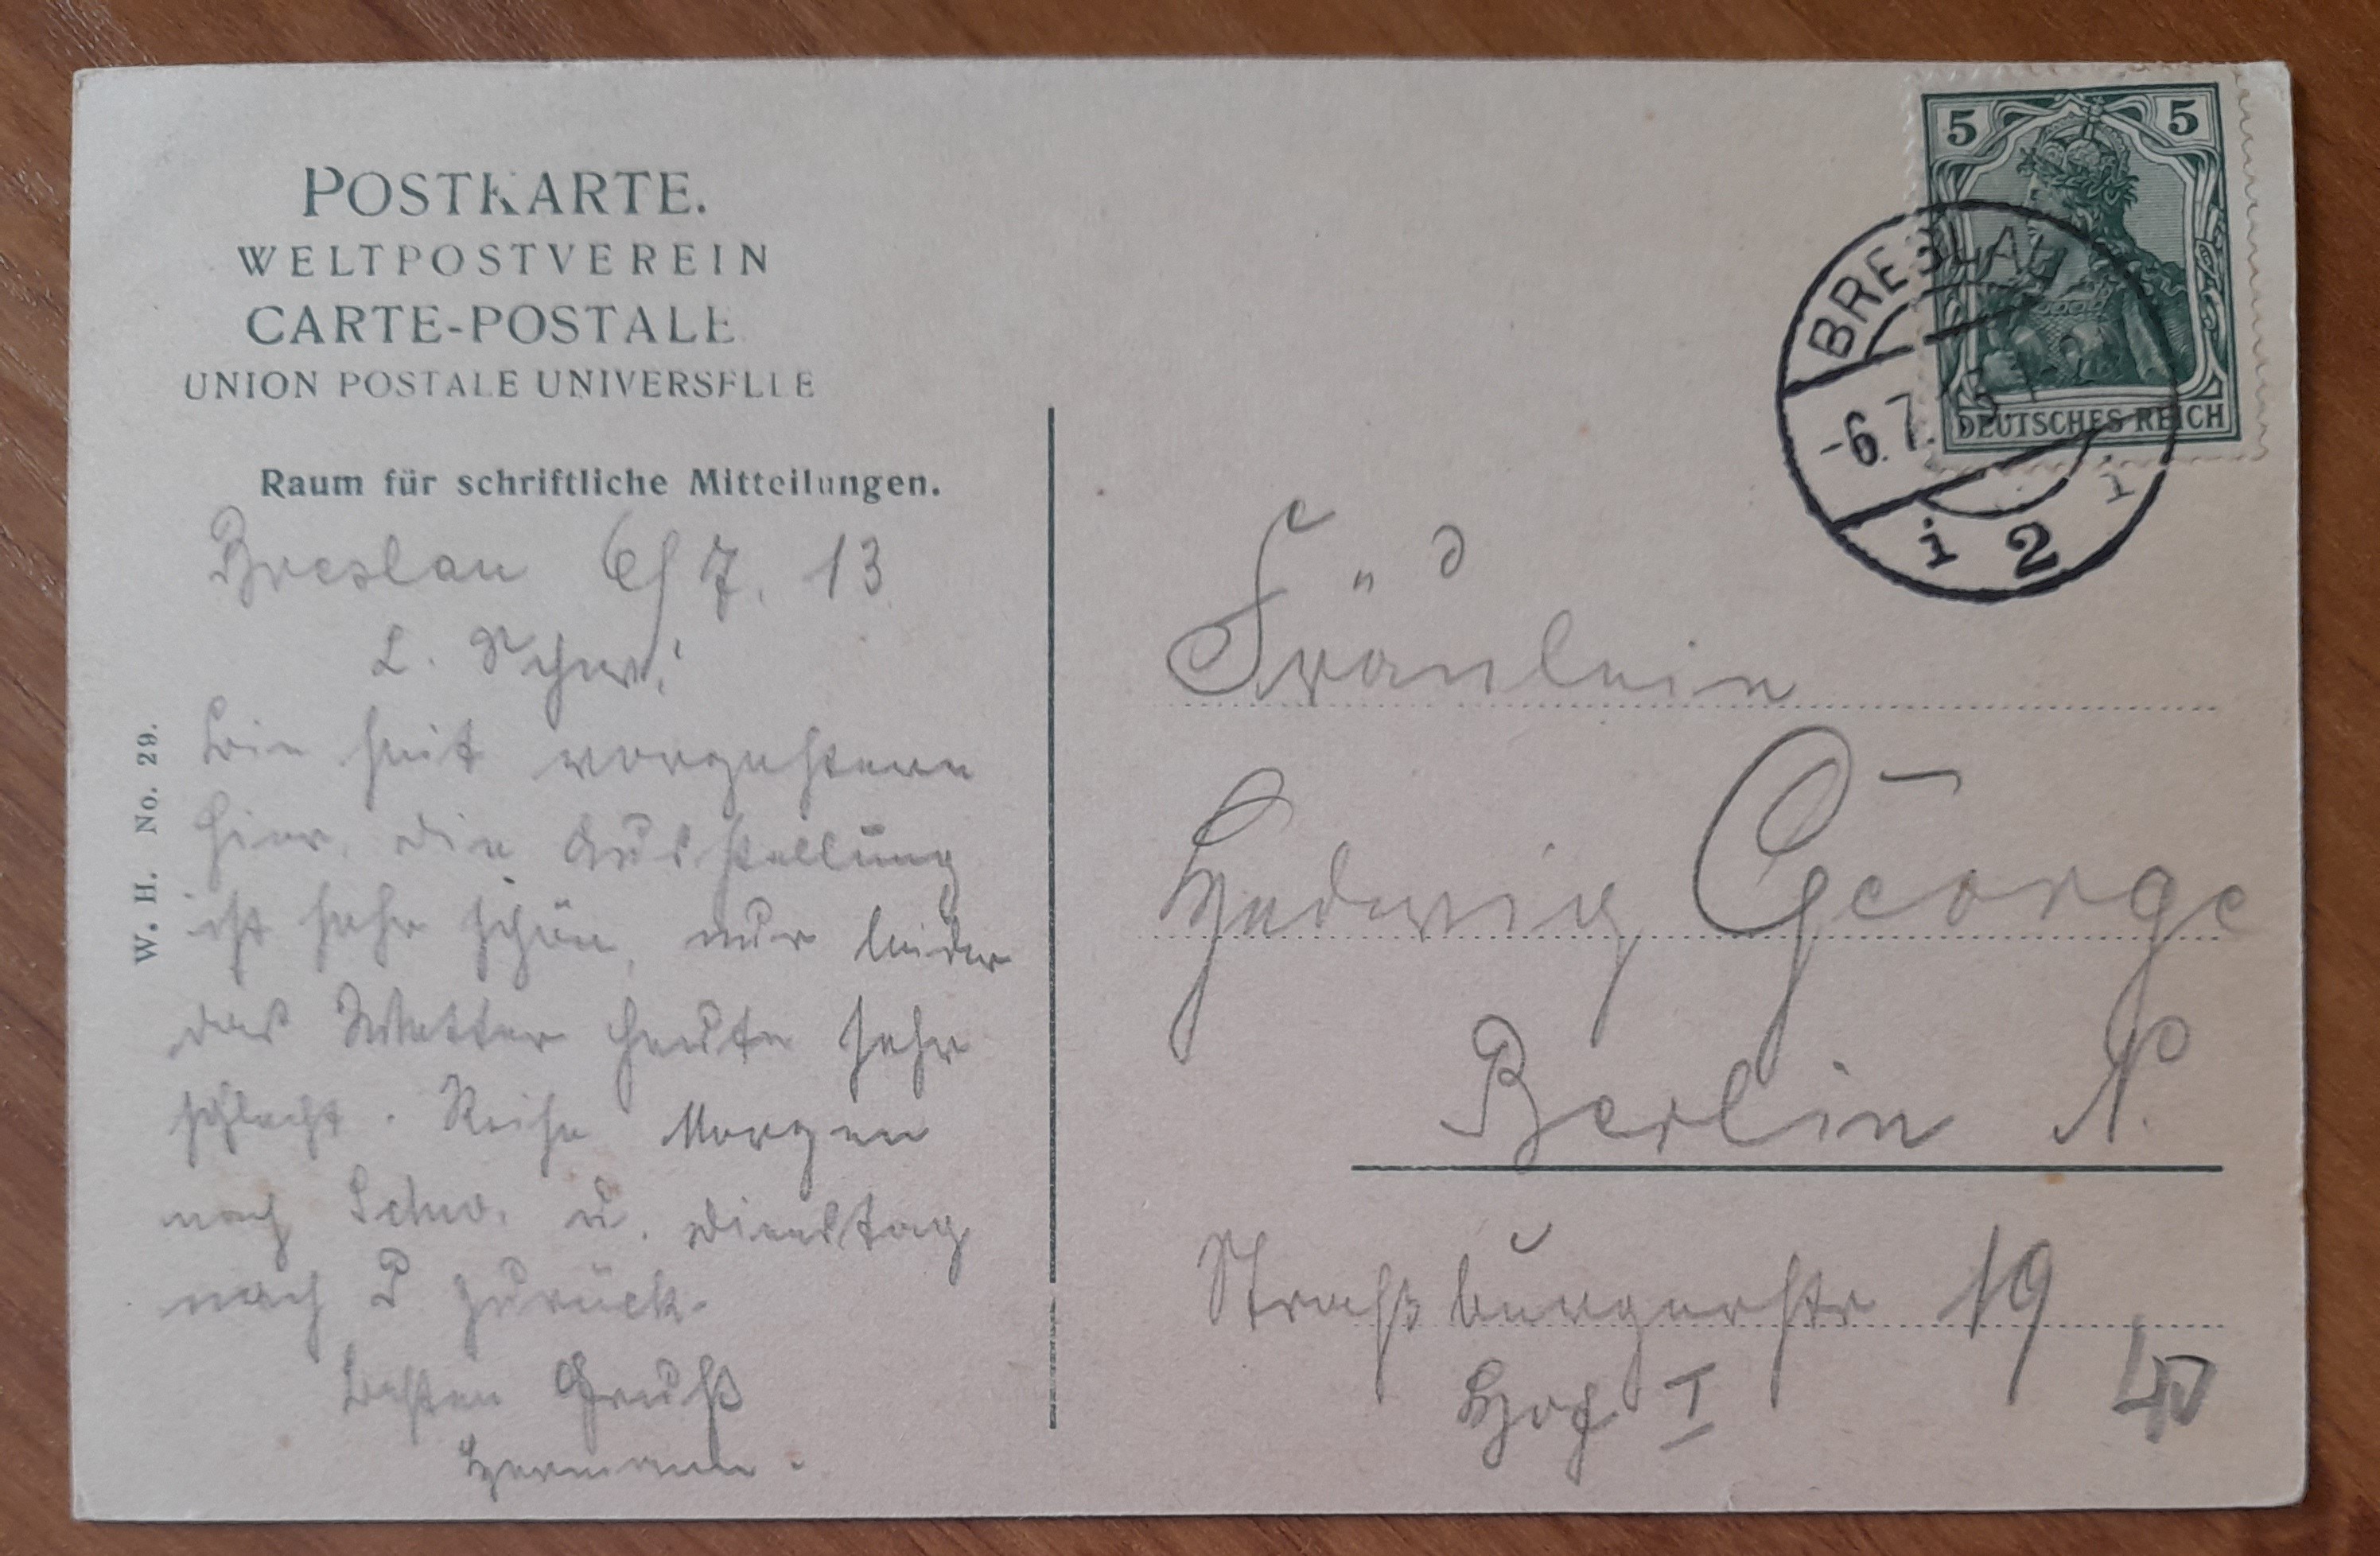 POSTKARTE.
WELTPOSTVEREIN
CARTE-POSTALE
UNION POSTALE UNIVERSELLE
Raum für schriftliche Mitteilungen.
Breslau 6/7. 13.
L. Schw!
Bin seit vorgestern
hier, die Ausstellung
ist sehr schön, nur leider
das Wetter heute sehr
schlecht. Reise Morgen
nach Schw. u. Dienstag
nach P zurück.
Besten Gruß
Hermann.
W. H. No. 29.
5 5
DEUTSCHES REICH
BRESLAU
-6.7.13
i 2 i
Fräulein
Hedwig George
Berlin N.
Straßburgerstr 19
Hof I